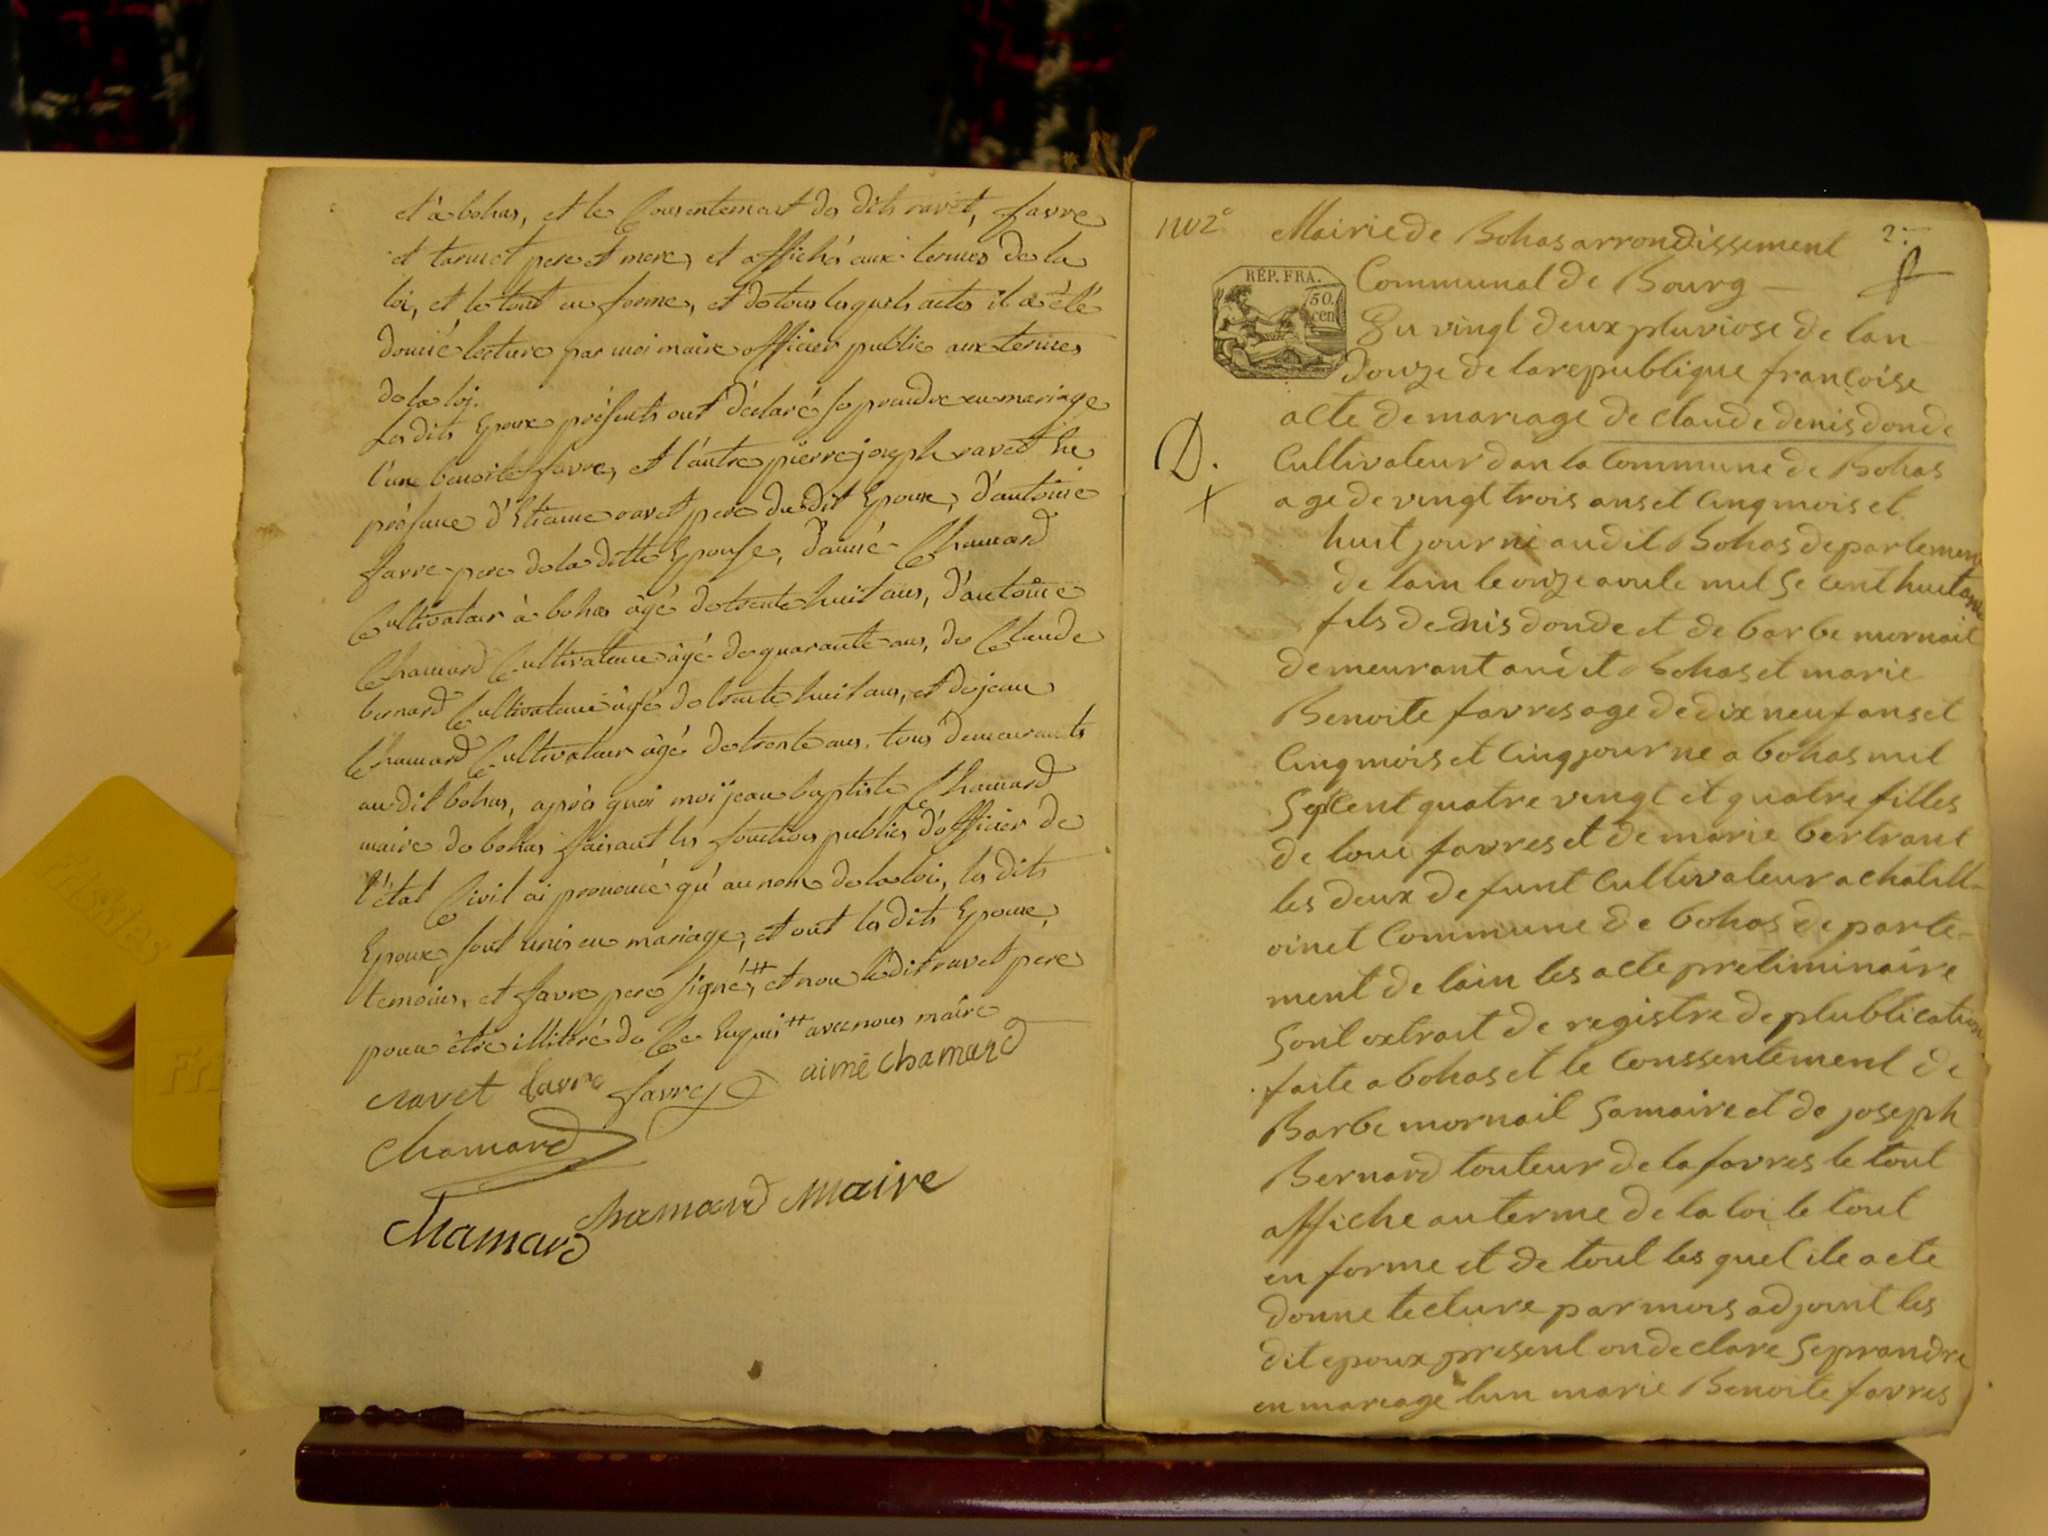 et à bohas, et le Consentement des dits ravet, favre
et tarnet pere et mere, et affiché aux termes de la
loi, et le tout en forme, et de tous lesquels actes il a été
donné lecture par moi maire officier public aux termes
de la loi.
Les dits Epoux présents ont déclaré se prendre en mariage
l'un benoite favre, et l'autre pierre joseph ravet En
présence d'Etienne ravet pere du dit Epoux, d'antoine
favre pere de la ditte Epouse, d'aimé Chamard
Cultivateur à bohas âgé de trente huit ans, d'antoine
Chamard Cultivateur âgé de quarante ans, de Claude
bernard Cultivateur âgé de trente huit ans, et de jean
Chamard Cultivateur âgé de trente ans. tous demeurants
au dit bohas, après quoi moi jean baptiste Chamard
maire de bohas faisant les fonctions publics d'officier de
l'état Civil ai prononcé qu'au nom de la loi, les dits
Epoux sont unis en mariage, et ont les dits Epoux,
temoins, et favre pere signé,# et non le dit ravet pere
pour être illitéré de Ce Enquis # avec nous maire
ravet favre favre aimé chamard
Chamard
Chamard chamard maire
REP. FRA.
50.
cen
D.
+
2.
Mairie de Bohas arrondissement
Communal de Bourg
Du vingt deux pluviose de lan
douze de la republique françoise
acte de mariage de claude denis donde
Cultivateur dan la Commune de Bohas
age de vingt trois ans et Cinq mois et
huit jour né audit Bohas departement
de lain le onze mil Se cent huitante
fils de denis donde et de barbe mornail
demeurant audit Bohas et marie
Benoite favres age de dix neuf ans et
Cinq mois et Cinq jour ne a bohas mil
Sept Cent quatre vingt et quatre filles
de loui favres et de marie bertrant
les deux defunt Cultivateur a chatill-
oinet Commune de bohas departe-
ment de lain les acte preliminaire
Sont extrait de registre de plublication
faite a bohas et le Conssentement de
Barbe mornail Samaire et de joseph
Bernard touteur de la favres le tout
affiche au terme de la loi le tout
en forme et de tout les quel ile acte
donne lecture par mois adjoint les
dit epoux present on declare Seprandre
en mariage lun marie Benoite favres